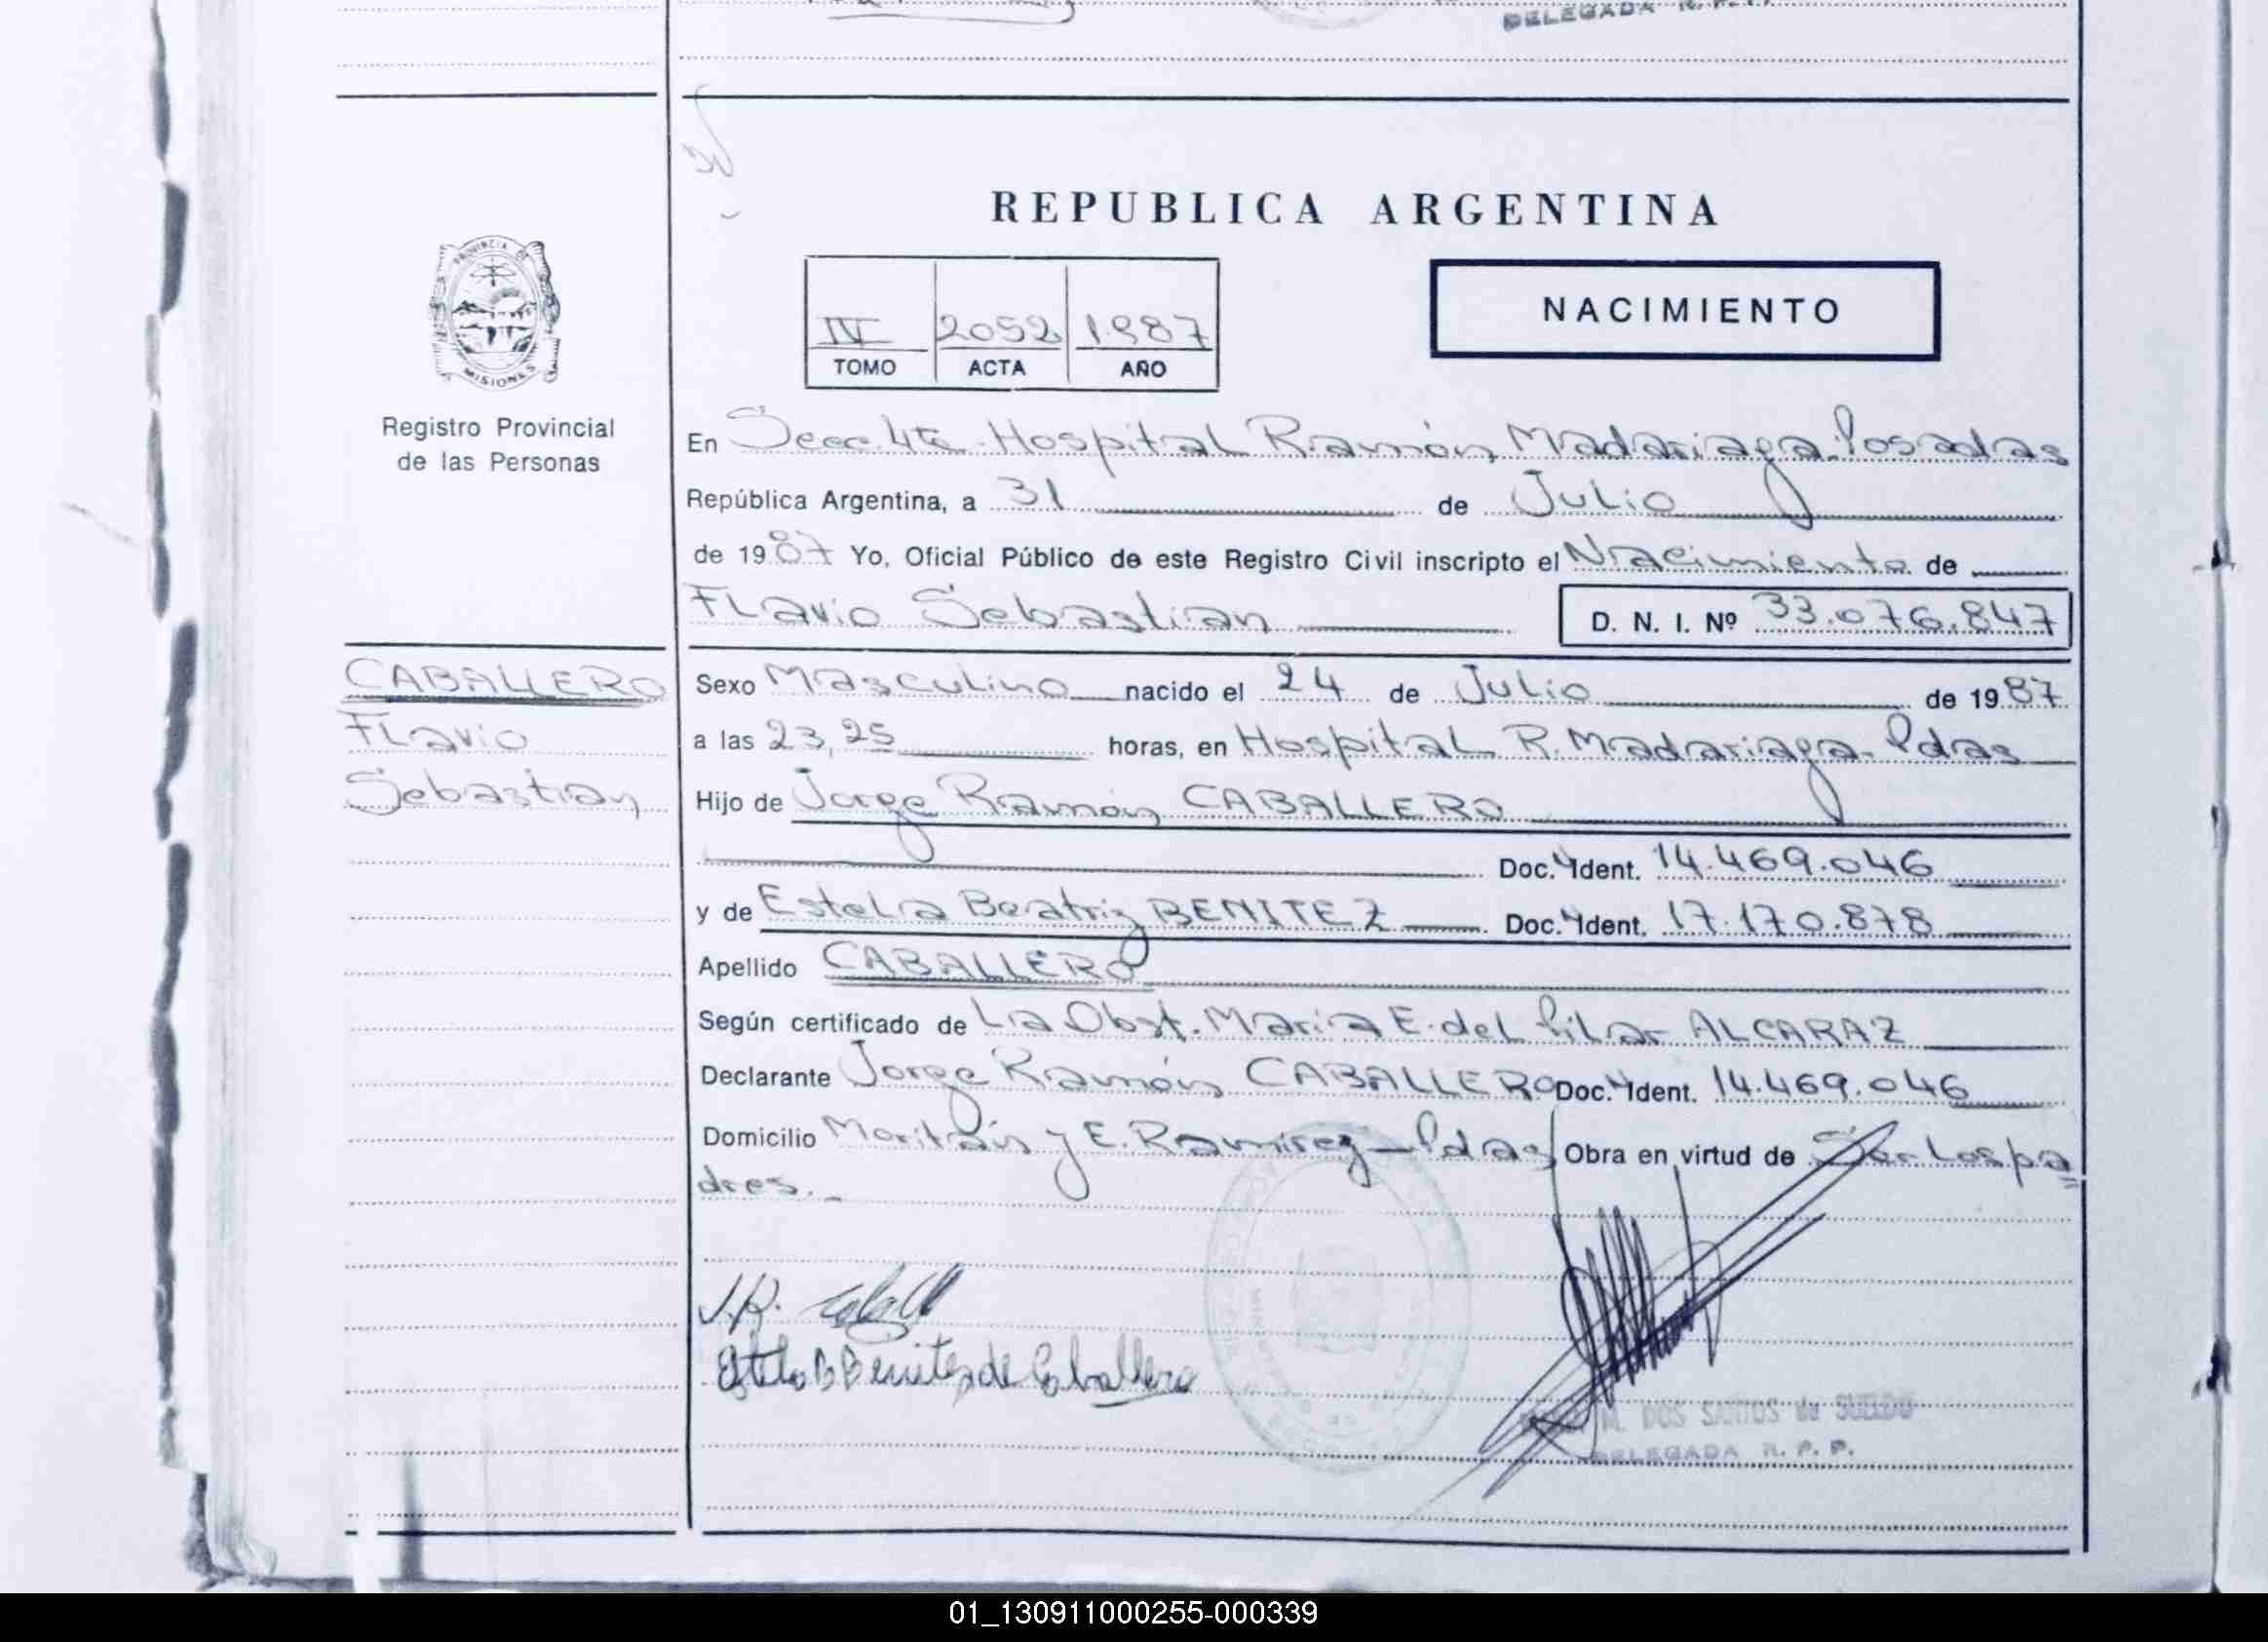 DELEGADA R. P. P.
REPUBLICA ARGENTINA
PROVINCIA DE
MISIONES
Registro Provincial
de las Personas
IV 2052 1987
TOMO ACTA AÑO
NACIMIENTO
En Secc. 4ta. Hospital Ramón Madariaga. Posadas
República Argentina, a 31 de Julio
de 1987 Yo, Oficial Público de este Registro Civil inscripto el Nacimiento de
Flavio Sebastian D. N. I. Nº 33.076.847
CABALLERO
Flavio
Sebastian
Sexo Masculino nacido el 24 de Julio de 1987
a las 23,25 horas, en Hospital R. Madariaga- Pdas
Hijo de Jorge Ramón CABALLERO
Doc. Ident. 14.469.046
y de Estela Beatriz BENITEZ Doc. Ident. 17.170.878
Apellido CABALLERO
Según certificado de La Obst. María E. del Pilar ALCARAZ
Declarante Jorge Ramón CABALLERO Doc. Ident. 14.469.046
Domicilio y E. Ramírez - Pdas Obra en virtud de Ser Los pa
dres._
J.R.
Estela B Benitez de Caballero
M. DOS SANTOS de SUELDO
DELEGADA R. P. P.
01_130911000255-000339